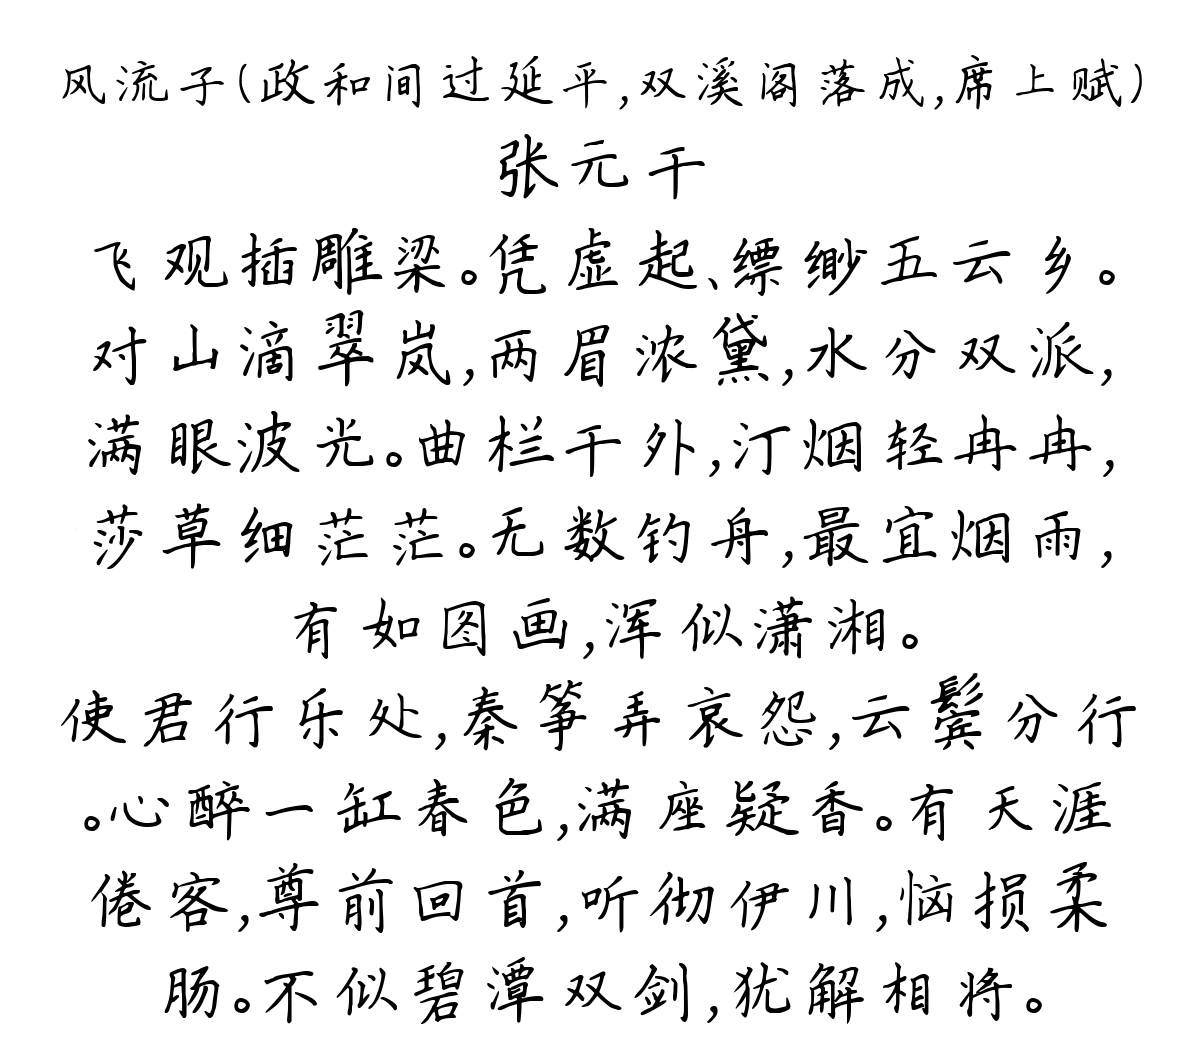 风流子(政和间过延平,双溪阁落成,席上赋)
张元干
飞观插雕梁。凭虚起、缥缈五云乡。
对山滴翠岚,两眉浓黛,水分双派,
满眼波光。曲栏干外,汀烟轻冉冉,
莎草细茫茫。无数钓舟,最宜烟雨,
有如图画,浑似潇湘。
使君行乐处,秦筝弄哀怨,云鬓分行
。心醉一缸春色,满座疑香。有天涯
倦客,尊前回首,听彻伊川,恼损柔
肠。不似碧潭双剑,犹解相将。